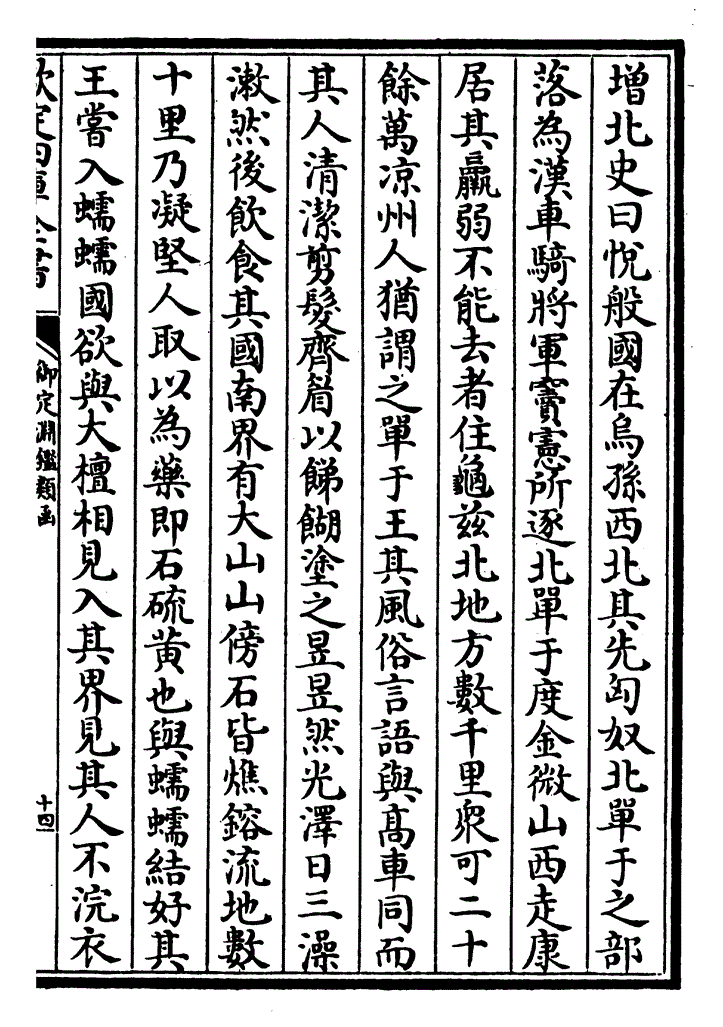 增北史曰悅般國在烏孫西北其先匈奴北單于之部
落為漢車騎將軍竇憲所逐北單于度金微山西走康
居其羸弱不能去者住龜兹北地方數千里衆可二十
餘萬凉州人猶謂之單于王其風俗言語與髙車同而
其人清潔剪髮齊眉以餳餬塗之昱昱然光澤日三澡
漱然後飲食其國南界有大山山傍石皆燋鎔流地數
十里乃凝堅人取以為藥即石硫黄也與蠕蠕結好其
王嘗入蠕蠕國欲與大檀相見入其界見其人不浣衣
欽定四庫全書
御定淵鑑類函
十四